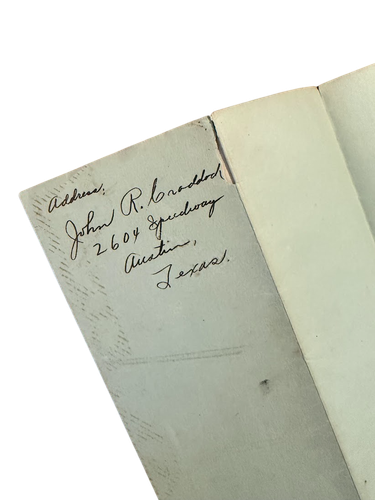 Address:
John R. Craddock
2604 Speedway
Austin,
Texas.